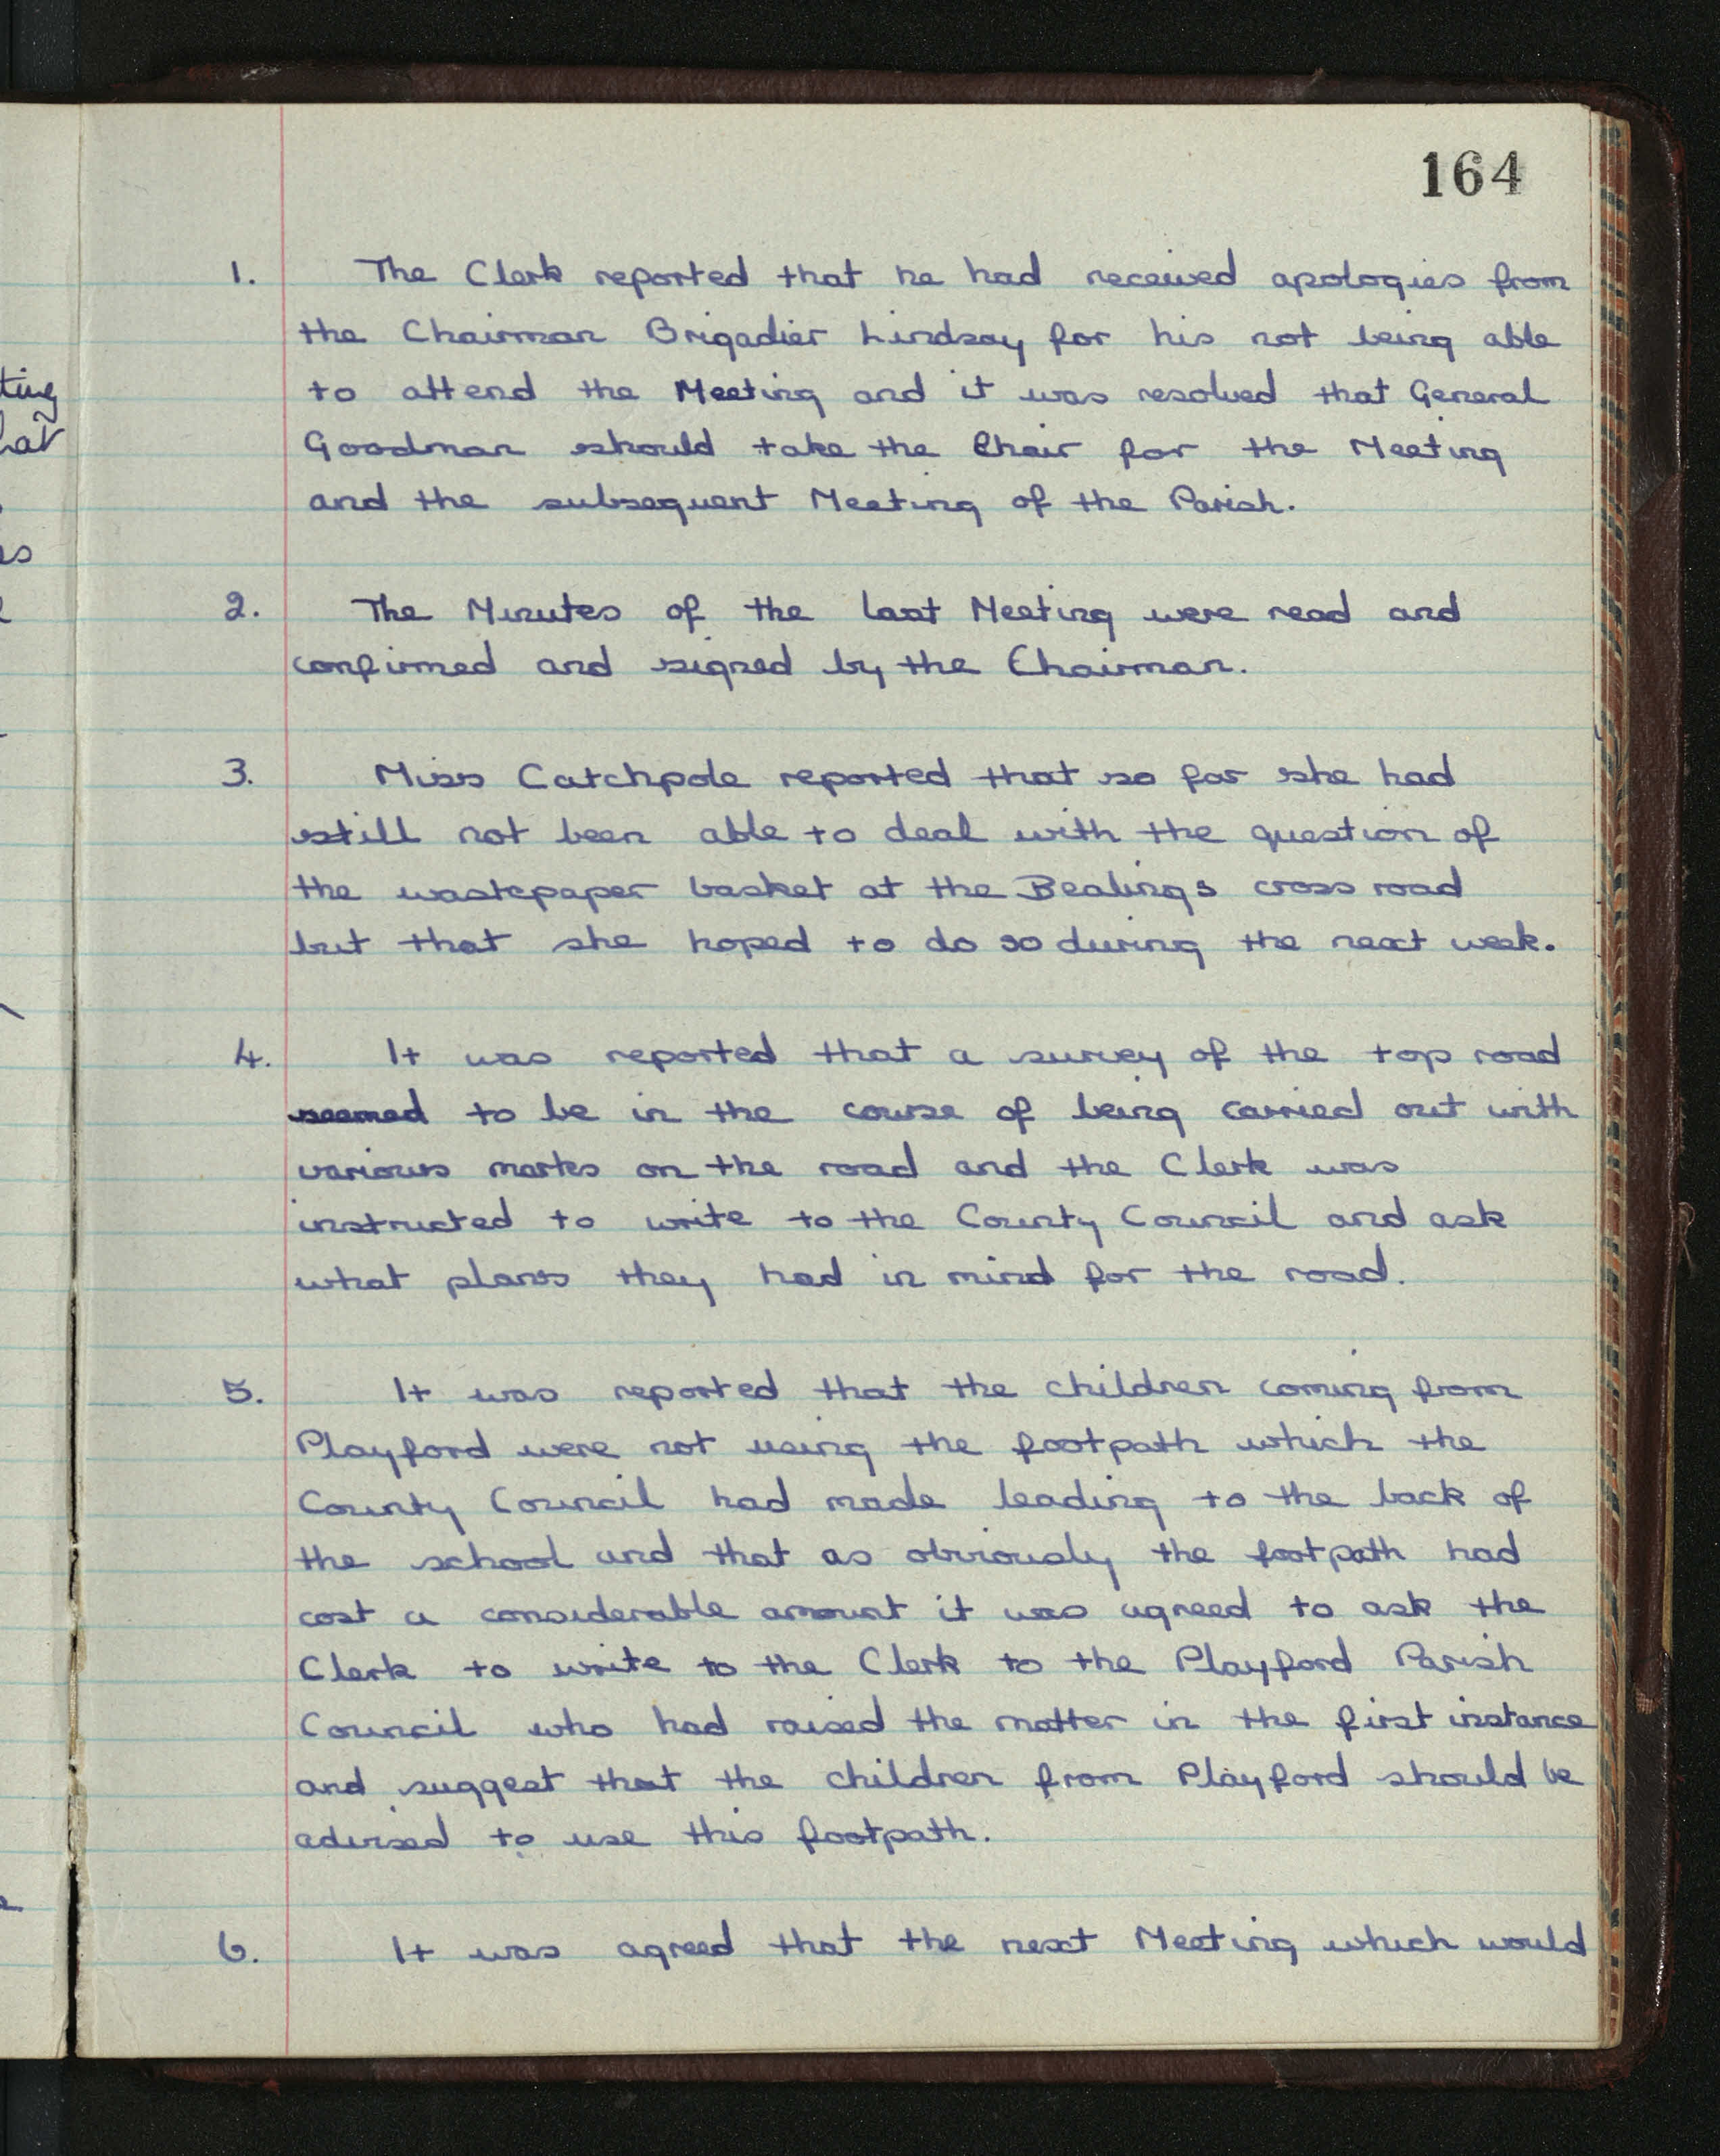 164
1. The Clerk reported that he had received apologies from
the Chairman Brigadier Lindsay for his not being able
to attend the Meeting and it was resolved that General
Goodman should take the Chair for the Meeting
and the subsequent Meeting of the Parish.
2. The Minutes of the last Meeting were read and
confirmed and signed by the Chairman.
3. Miss Catchpole reported that so far she had
still not been able to deal with the question of
the wastepaper basket at the Bealings cross road
but that she hoped to do so during the next week.
4. It was reported that a survey of the top road
seemed to be in the course of being carried out with
various marks on the road and the Clerk was
instructed to write to the County Council and ask
what plans they had in mind for the road.
5. It was reported that the children coming from
Playford were not using the footpath which the
County Council had made leading to the back of
the school and that as obviously the footpath had
cost a considerable amount it was agreed to ask the
Clerk to write to the Clerk to the Playford Parish
Council who had raised the matter in the first instance
and suggest that the children from Playford should be
advised to use this footpath.
6. It was agreed that the next Meeting which would